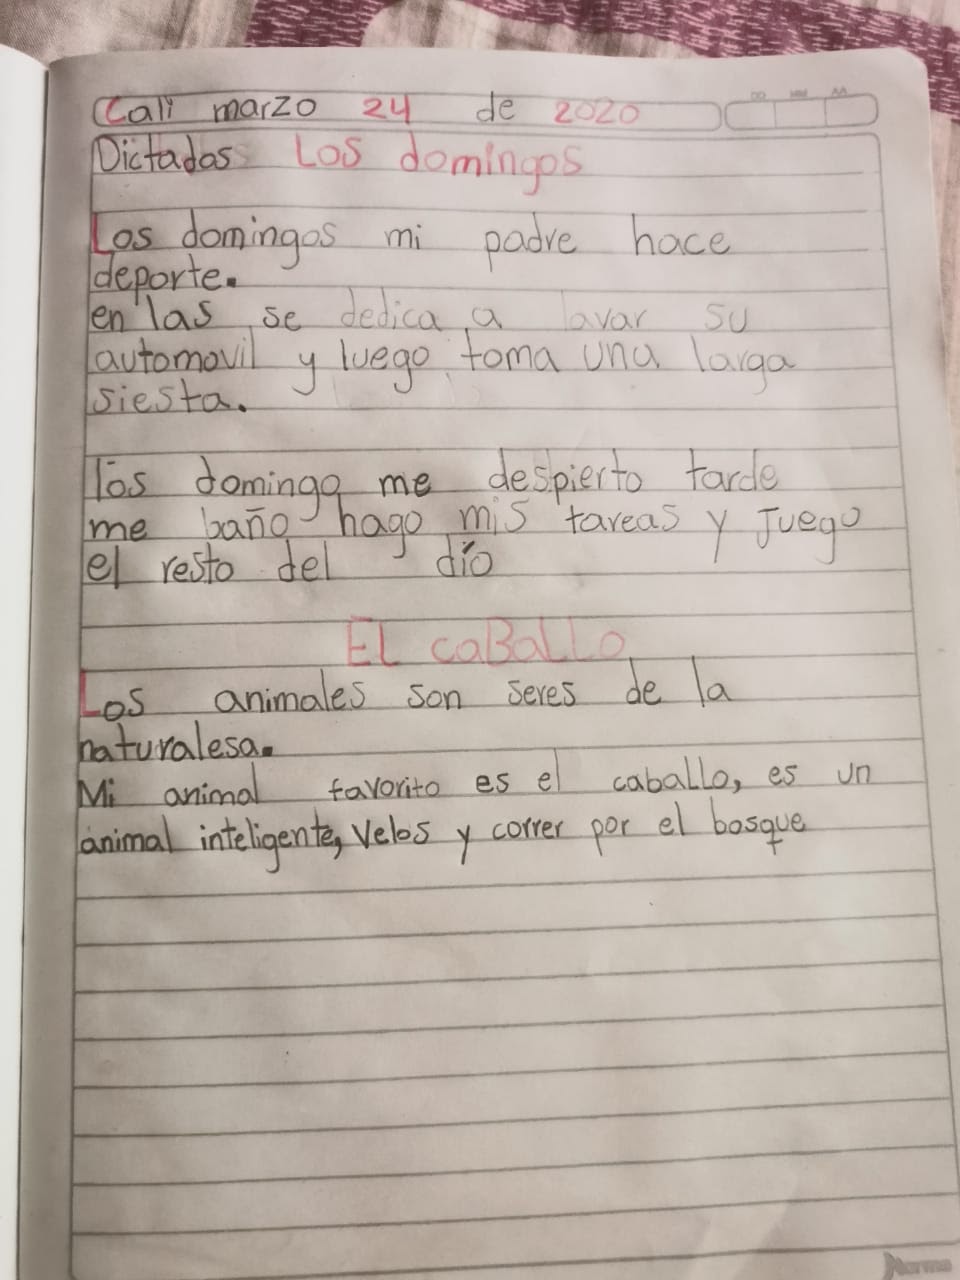 Cali marzo 24 de 2020
DD MM AA
Dictados Los domingos
Los domingos mi padre hace
deporte.
en las se dedica a lavar su
automovil y luego toma una larga
siesta.
los domingo me despierto tarde
me baño hago mis tareas y Juego
el resto del dío
EL caBaLLo
Los animales son seres de la
naturalesa.
Mi animal favorito es el caballo, es un
animal inteligente, velos y correr por el bosque
Norma